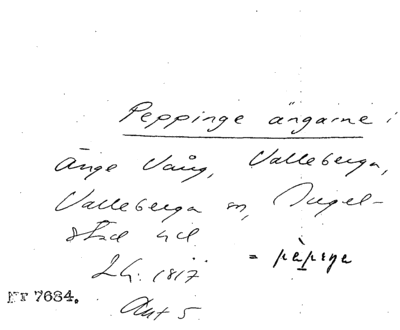 Peppinge ängarne i
Änge Vång, Valleberga,
Valleberga sn, Ingel-
stad hd
Lh. 1817 = pæ̀pɪŋə
Nr 7684. Akt 5